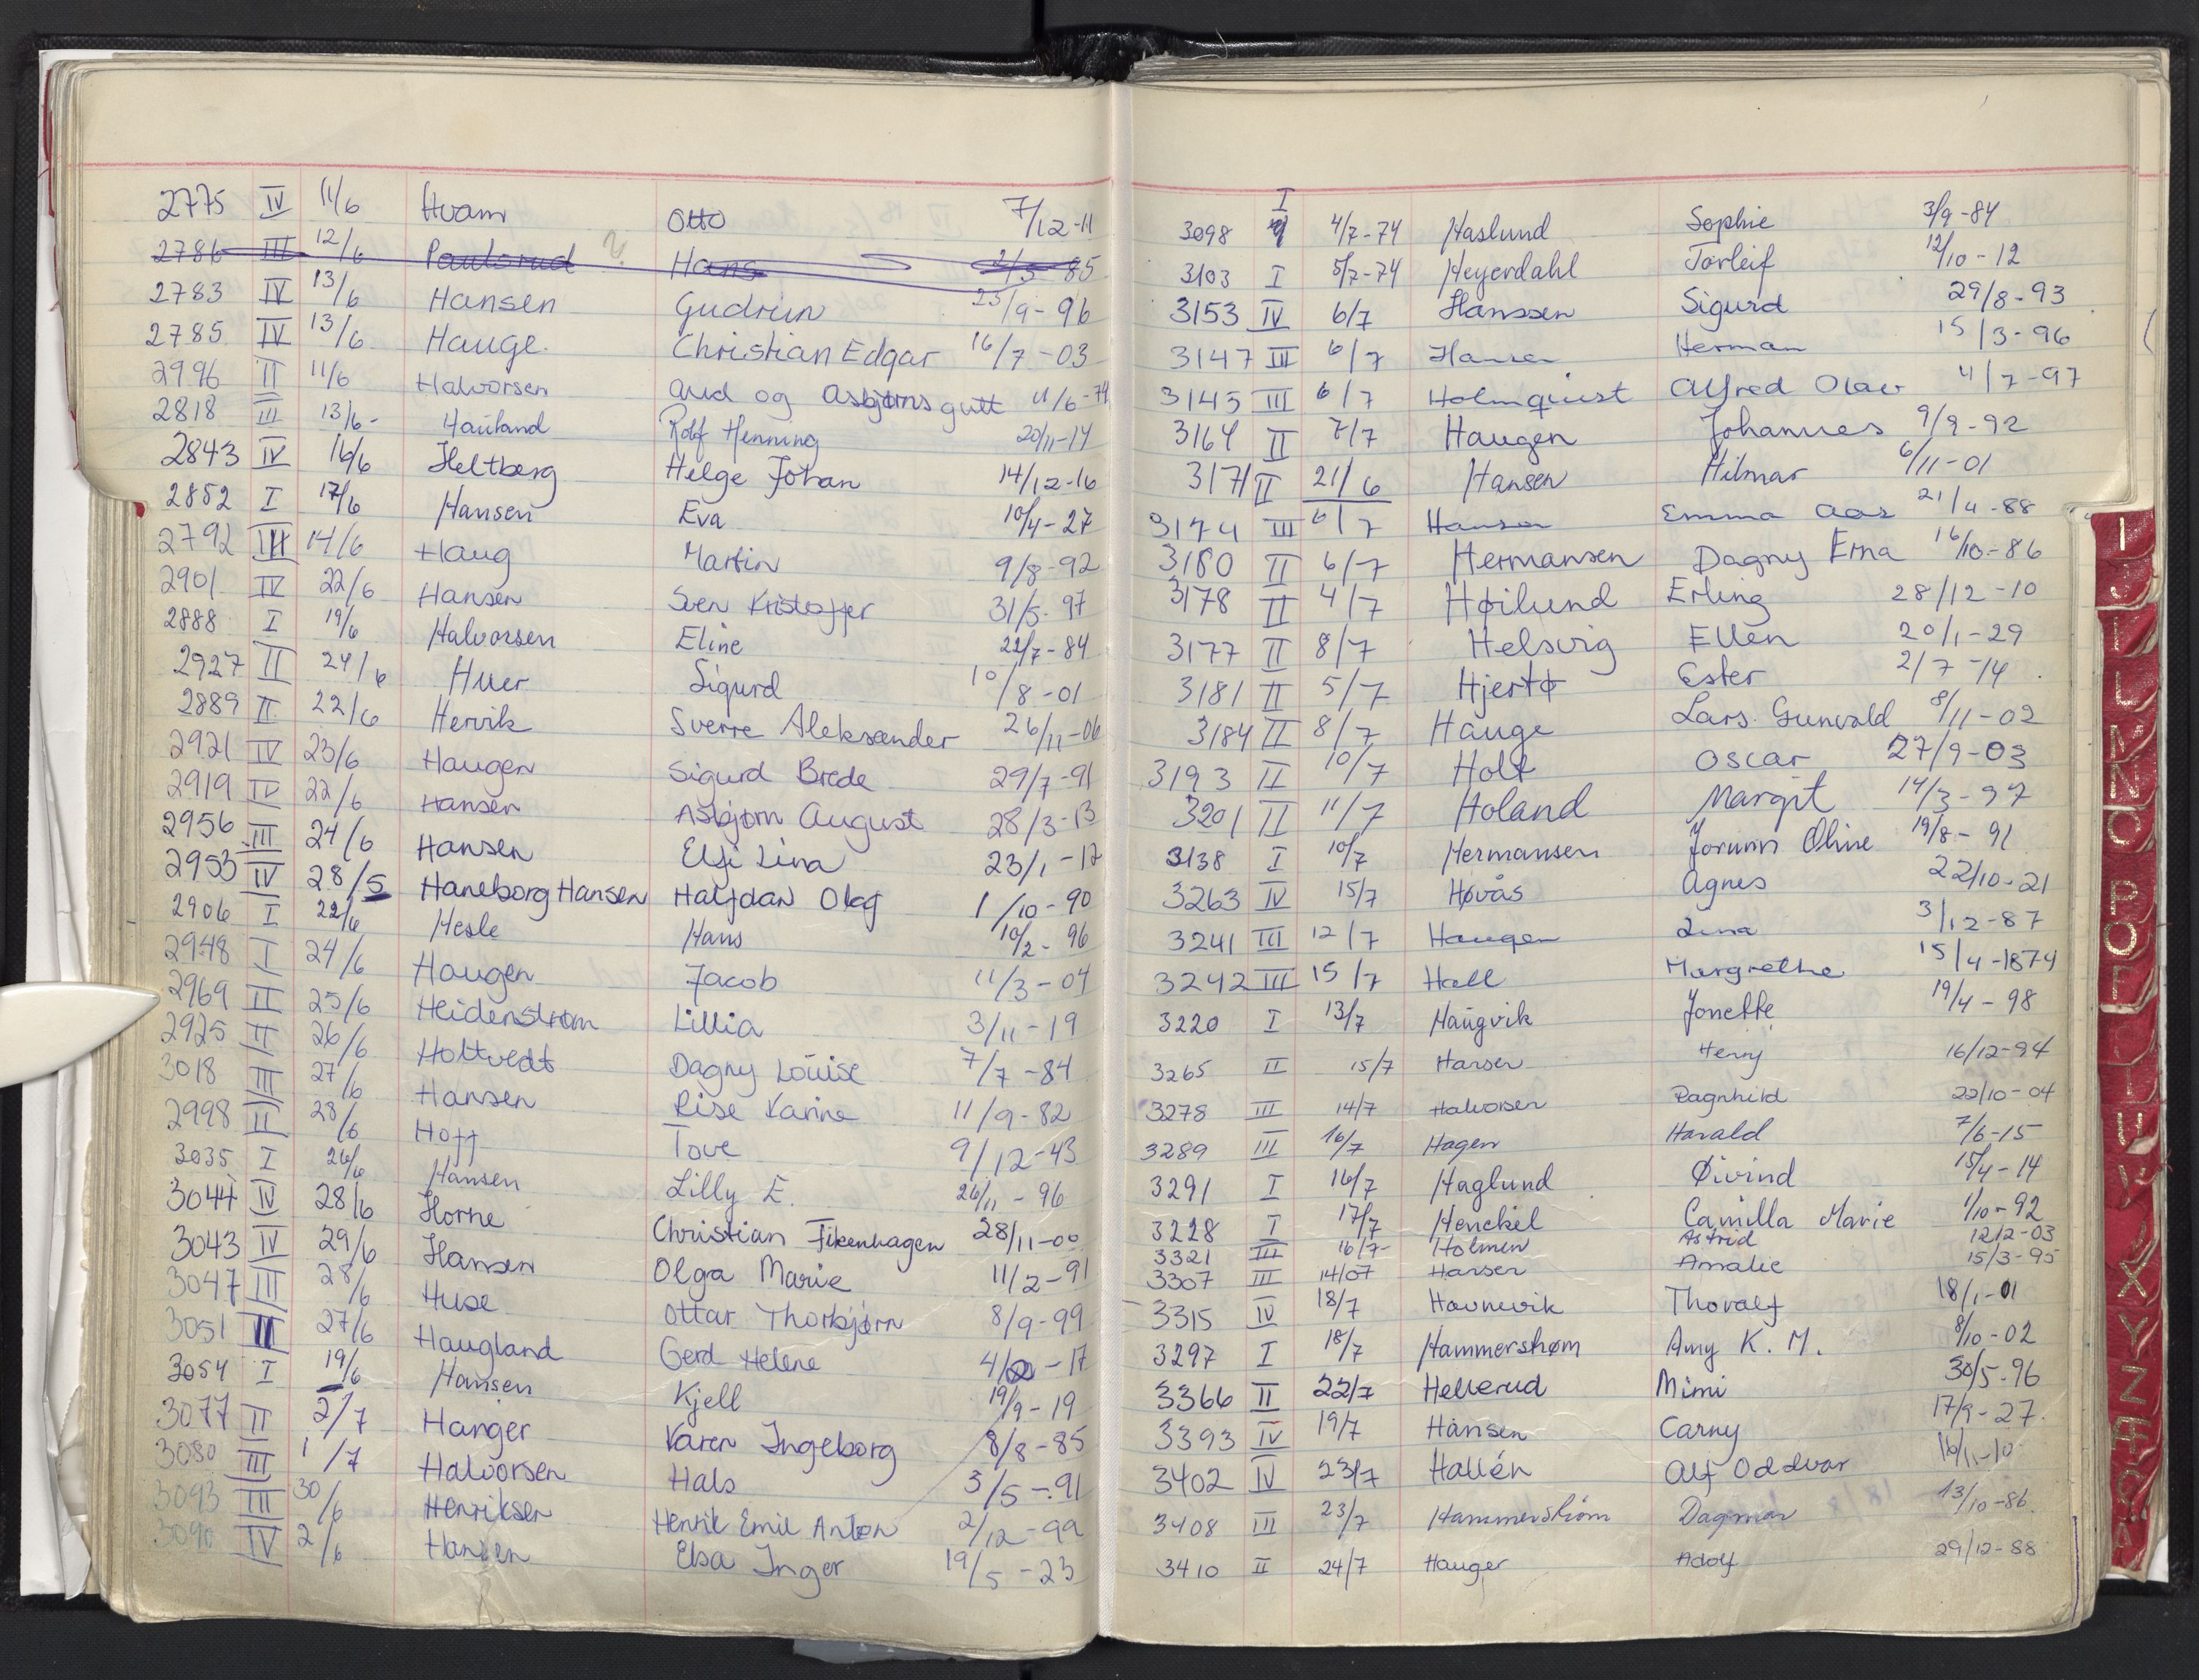 2775 IV 11/6 Hvam Otto 7/12-11
2786 III 12/6 Paulsrud ? Hans 2/3 85
2783 IV 13/6 Hansen Gudrun 25/9-96
2785 IV 13/6 Hauge Christian Edgar 16/7-03
2996 II 11/6 Halvorsen Aud og Asbjørns gutt 11/6-74
2818 III 13/6- Hauland Rolf Henning 20/11-14
2843 IV 16/6 Heltberg Helge Johan 14/12-16
2852 I 17/6 Hansen Eva 10/4-27
2792 III 14/6 Haug Martin 9/8-92
2901 IV 22/6 Hansen Sven Kristoffer 31/5-97
2888 I 19/6 Halvorsen Eline 22/7-84
2927 II 24/6 Huer Sigurd 10/8-01
2889 II 22/6 Hervik Sverre Aleksander 26/11-06
2921 IV 23/6 Haugen Sigurd Brede 29/7-91
2919 IV 22/6 Hansen Asbjørn August 28/3-13
2956 III 24/6 Hansen Elfi Lina 23/1-12
2953 IV 28/5 Haneborg Hansen Halfdan Olaf 1/10-90
2906 I 22/6 Hesle Hans 10/2-96
2948 I 24/6 Haugen Jacob 11/3-04
2969 II 25/6 Heidenstrøm Lillia 3/11-19
2925 II 26/6 Holtvedt Dagny Louise 7/7-84
3018 III 27/6 Hansen Lise Karine 11/9-82
2998 II 28/6 Hoff Tove 9/12-43
3035 I 26/6 Hansen Lilly E. 26/11-96
3044 IV 28/6 Horne Christian Fikenhagen 28/11-00
3043 IV 29/6 Hansen Olga Marie 11/2-91
3047 III 28/6 Huse Ottar Thorbjørn 8/9-99
3051 II 27/6 Haugland Gerd Helene 4/2-17
3054 I 19/6 Hansen Kjell 19/9-19
3077 II 2/7 Hanger Karen Ingeborg 8/8-85
3080 III 1/7 Halvorsen Hals 3/5-91
3093 III 30/6 Henriksen Henrik Emil Anton 2/12-99
3090 IV 2/6 Hansen Elsa Inger 19/5-23
I
3098 4/7-74 Haslund Sophie 3/9-84
3103 I 5/7-74 Heyerdahl Torleif 12/10-12
3153 IV 6/7 Hanssen Sigurd 29/8-93
3147 III 6/7 Hansen Herman 15/3-96
3145 III 6/7 Holmquist Alfred Olav 4/7-97
3164 II 7/7 Haugen Johannes 9/9-92
3171 II 21/6 Hansen Hilmar 6/11-01
3174 III 6/7 Hansen Emma Aas 21/4-88
3180 II 6/7 Hermansen Dagny Erna 16/10-86
3178 II 4/7 Høilund Erling 28/12-10
3177 II 8/7 Helsvig Ellen 20/1-29
3181 II 5/7 Hjertø Ester 2/7-14
3184 II 8/7 Hauge Lars Gunvald 8/11-02
3193 II 10/7 Holt Oscar 27/9-03
3201 II 11/7 Holand Margit 14/3-97
3138 I 10/7 Hermansen Jorunn Oline 19/8-91
3263 IV 15/7 Høvås Agnes 22/10-21
3241 III 12/7 Haugen Lina 3/12-87
3242 III 15/7 Hall Margrethe 15/4-1874
3220 I 13/7 Haugvik Jonette 19/4-98
3265 II 15/7 Hansen Henry 16/12-94
3278 III 14/7 Halvorsen Ragnhild 22/10-04
3289 III 16/7 Hagen Harald 7/6-15
3291 I 16/7 Haglund Øivind 15/4-14
3228 I 17/7 Henckel Camilla Marie 1/10-92
3321 III 16/7- Holmen Astrid 12/2-03
3307 III 14/07 Hansen Amalie 15/3-95
3315 IV 18/7 Havnevik Thoralf 18/1-01
3297 I 18/7 Hammerstrøm Amy K. M. 8/10-02
3366 II 22/7 Hellerud Mimi 30/5-96
3393 IV 19/7 Hansen Carny 17/9-27
3402 IV 23/7 Hallén Alf Oddvar 16/11-10
3408 III 23/7 Hammerstrøm Dagmar 13/10-86
3410 II 24/7 Hauger Adolf 29/12-88